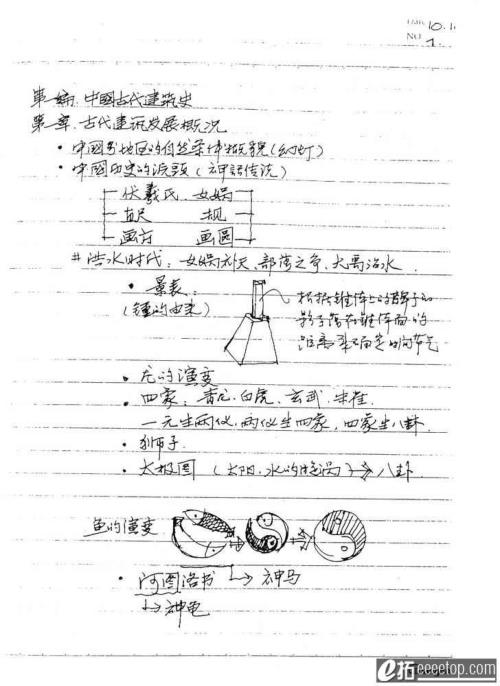 TIME 10.1
NO 1.
第一编. 中國古代建筑史
第一章. 古代建筑发展概况
· 中國各地区的自然条件概貌(幻灯)
· 中國历史的源头(神話传说)
伏羲氏 女娲
直尺 规
画方 画圆
# 洪水时代: 女娲补天、部落之争、大禹治水
· 景表:
(鍾的由来)
影子落在锥体面的
距离来
节气
· 龙的演变
· 四象: 青龙.白虎、玄武.朱雀
一元生两仪.两仪生四象, 四象生八卦
· 狮子.
· 太极图 (太阳.水的旋涡) → 八卦.
鱼的演变
· 河图洛书 → 神马
→ 神龟
e拓 eeeetop.com